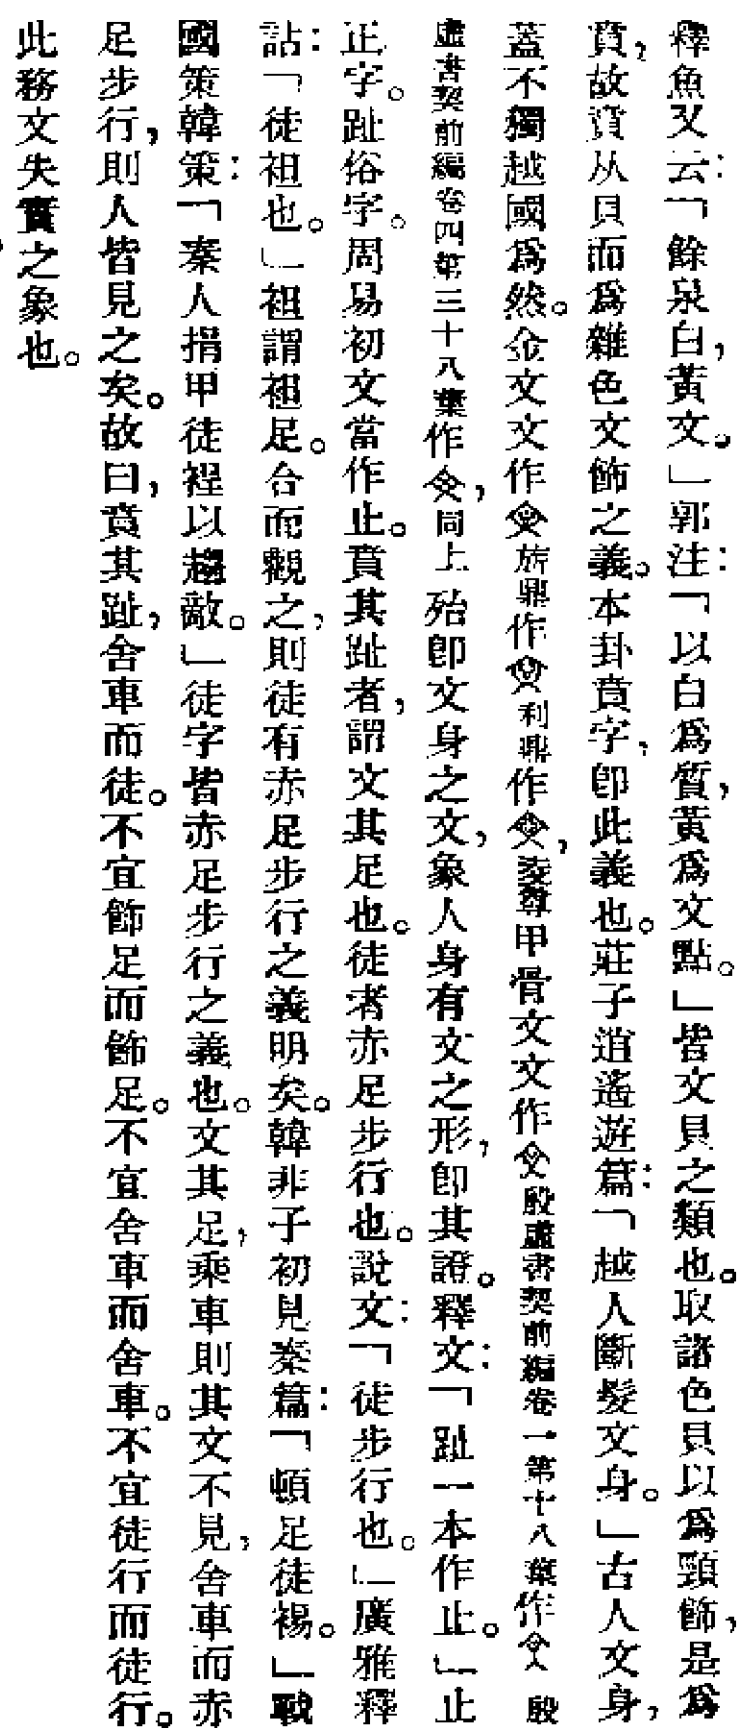 釋魚又云：「餘泉白，黃文。」郭注：「以白爲質，黃爲文點。」皆文貝之類也。取諸色貝以爲頸飾，是爲
賁，故賁从貝而爲雜色文飾之義。本卦賁字，卽此義也。莊子逍遙遊篇：「越人斷髮文身。」古人文身，
蓋不獨越國爲然。金文文作 旂鼎作 利鼎作，淩尊甲骨文文作 殷虛書契前編卷一第十八葉作 殷
虛書契前編卷四第三十八葉作，同上 殆卽文身之文，象人身有文之形，卽其證。釋文：「趾一本作止。」止
正字。趾俗字。周易初文當作止。賁其趾者，謂文其足也。徒者赤足步行也。說文：「徒步行也。」廣雅釋
詁：「徒袒也。」袒謂袒足。合而觀之，則徒有赤足步行之義明矣。韓非子初見秦篇：「頓足徒裼。」戰
國策韓策：「秦人捐甲徒裎以趨敵。」徒字皆赤足步行之義也。文其足，乘車則其文不見，舍車而赤
足步行，則人皆見之矣。故曰，賁其趾，舍車而徒。不宜飾足而飾足。不宜舍車而舍車。不宜徒行而徒行。
此務文失實之象也。